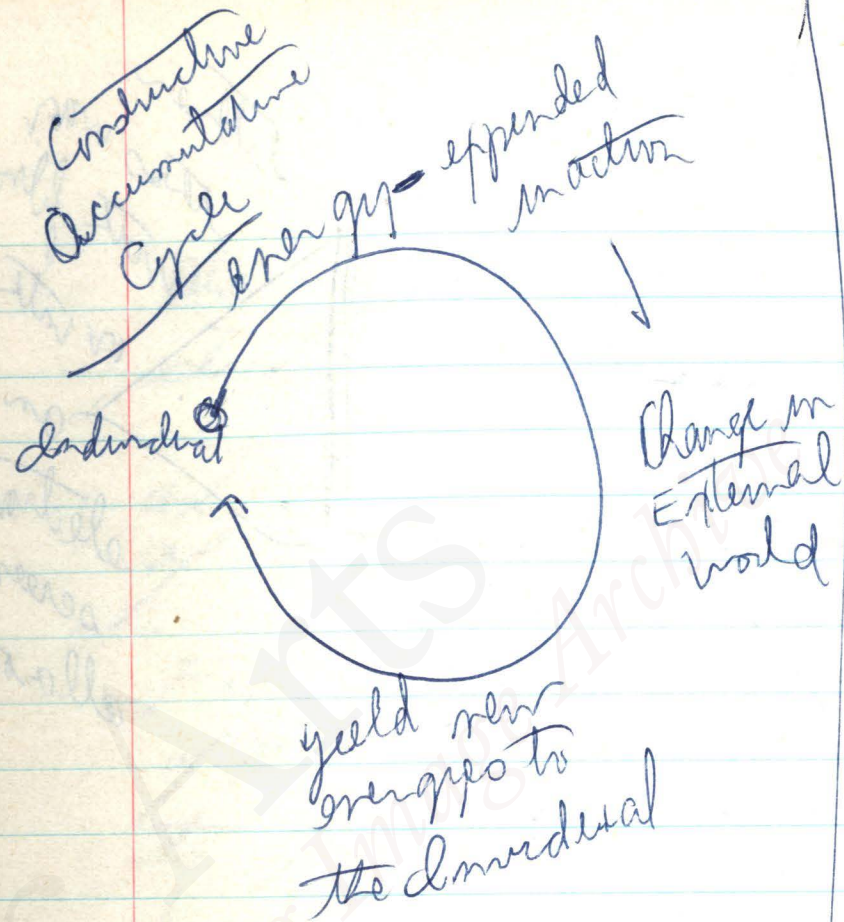 Constructive
Accumulative
Cycle
energy - expended
in action
Individual
Change in
External
world
yield new
energies to
the Individual
Arts
Image Archive